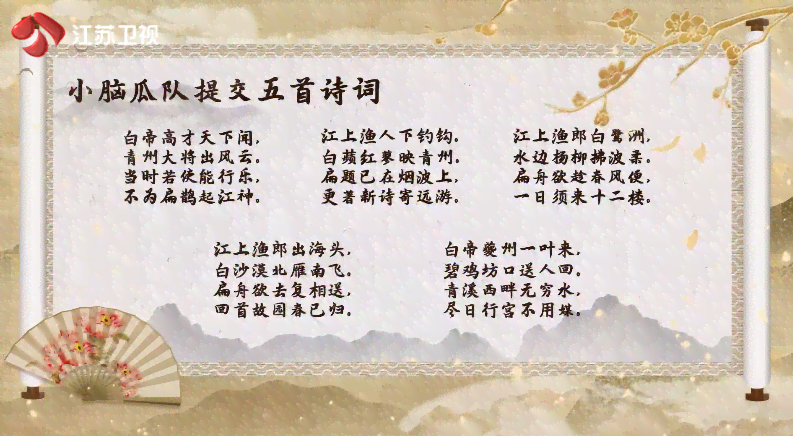 江苏卫视
小脑瓜队提交五首诗词
白帝高才天下闻，
青州大将出风云。
当时若使能行乐，
不为扁鹊起江神。
江上渔人下钓钩。
白蘋红蓼映青州。
扁题已在烟波上，
更著新诗寄远游。
江上渔郎白鹭洲，
水边杨柳拂波柔。
扁舟欲趁春风便，
一日须来十二楼。
江上渔郎出海头，
白沙漠北雁南飞。
扁舟欲去复相送，
回首故园春已归。
白帝夔州一叶来，
碧鸡坊口送人回。
青溪西畔无穷水，
尽日行宫不用媒。